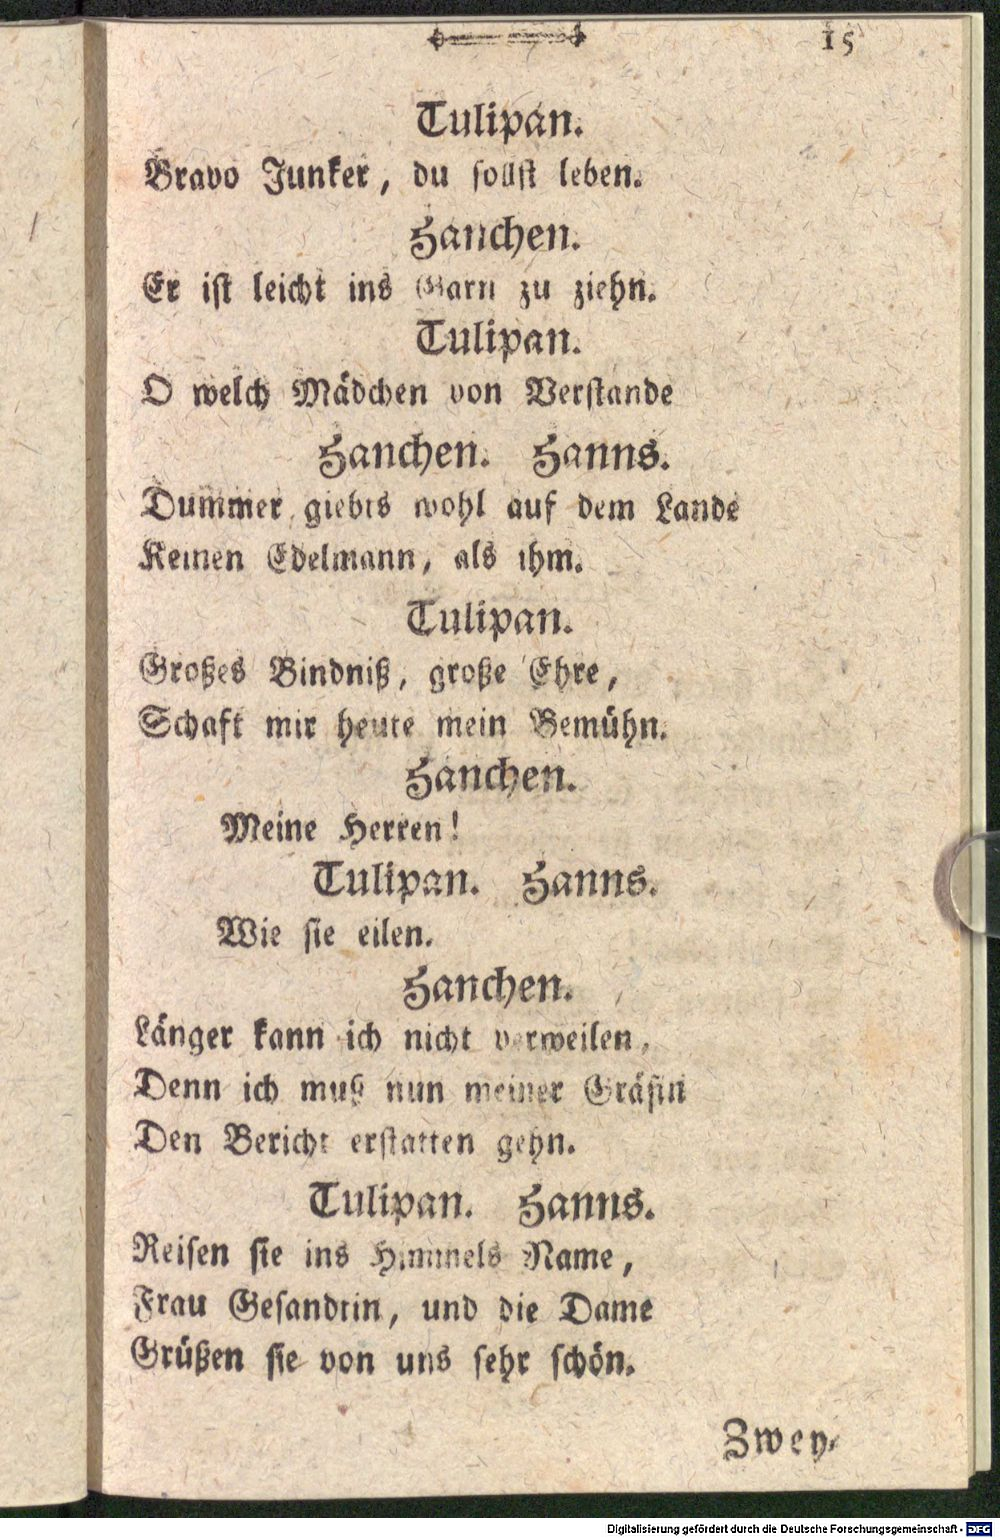 15
Tulipan.
Bravo Junker, du sollst leben.
Hanchen.
Er ist leicht ins Garn zu ziehn.
Tulipan.
O welch Mädchen von Verstande
Hanchen. Hanns.
Dummer giebts wohl auf dem Lande
Keinen Edelmann, als ihm.
Tulipan.
Großes Bindniß, große Ehre,
Schaft mir heute mein Bemühn.
Hanchen.
Meine Herren!
Tulipan. Hanns.
Wie sie eilen.
Hanchen.
Länger kann ich nicht verweilen,
Denn ich muß nun meiner Gräfin
Den Bericht erstatten gehn.
Tulipan. Hanns.
Reisen sie ins Himmels Name,
Frau Gesandtin, und die Dame
Grüßen sie von uns sehr schön.
Zwey-
Digitalisierung gefördert durch die Deutsche Forschungsgemeinschaft - DFG